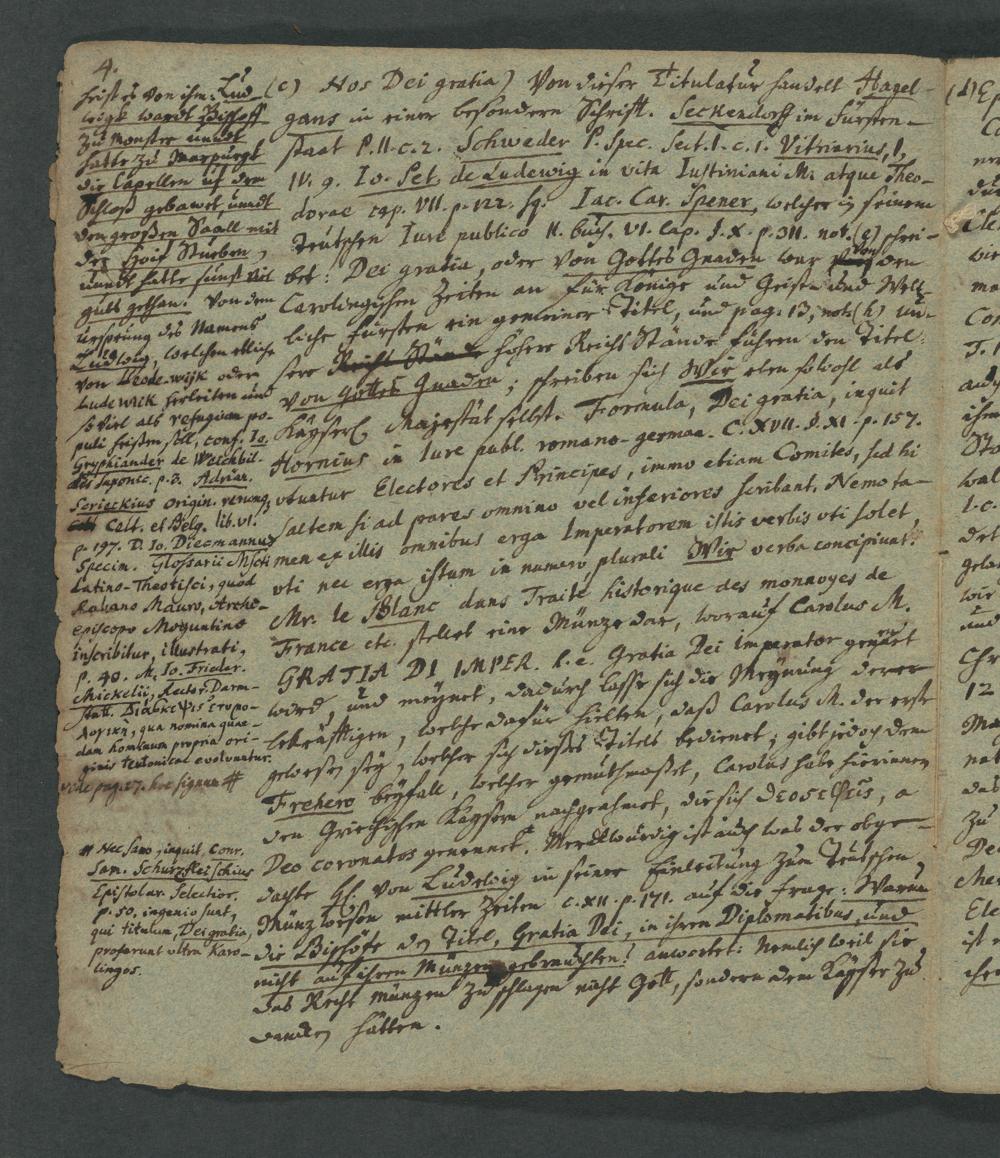 4.
heist es von ihm: Lud
wigk wardt Bischoff
zu Monster undt
hatte zu Marpurgk
die Capellen uf dem
Schloß gebawet, undt
den großen Saall mit
der Hoif Stuben,
undt hatte sunst viel
guts gethan. Von dem
Ursprung des Namens
Ludewig, welchen etliche
von Leode-wijk oder
Ludewik herleiten und
so viel als refugium po-
puli heißen soll, conf. Io.
Gryphiander de Weichbil-
dis Saxonic. p. 3. Adrian.
Scrieckius Origin. rerumq
Celt. et Belg. lib. VI.
p. 197. D. Io. Diecmannus
Specim. Glossarii Msoti
Latino-Theotisci, quod
Rabano Mauro, Archi-
episcopo Moguntino
inscribitur, illustrati,
p. 40. M. Io. Frider.
Mickelii, Rector. Darm-
statt. ετυμο-
λογικη, qua nomina quae-
dam hominum propria ori-
ginis teutonicae evolvuntur.
vide pag. 27. hoc signum #
# Nec sano, inquit, Conr.
Sam. Schurzfleischius
Epistolar. Selectior.
p. 50. ingenio sunt,
qui titulum, Dei gratia,
proferunt ultra Karo-
lingos.
(c) Nos Dei gratia) Von dieser Titulatur handelt Hagel-
gans in einer besondern Schrifft. Seckendorff im Fürsten-
staat P. II. c. 2. Schweder P. Spec. Sect. I. c. 1. Vitriarius, l.
IV. 9. Io. Pet. de Ludewig in vita Iustiniani M. atque Theo-
dorae cap. VII. p. 122. sq. Iac. Car. Spener, welcher in seinem
Teutschen Iure publico II. buch. VI. Cap. §. X. p. 311. not. (e) schrei-
bet: Dei gratia, oder von Gottes Gnaden war von den
Carolingischen Zeiten an für Könige und Geist- und Welt-
liche Fürsten ein gemeiner Titel, und pag. 13, not. (h) un-
sere Reichs Stände höhere Reichs Stände führen den Titel:
Von Gottes Gnaden; schreiben sich Wir eben sowohl als
Käyserl. Majestät selbst. Formula, Dei gratia, inquit
Hornius in Iure publ. romano-german. C. XVII. §. XI. p. 157.
utuntur Electores et Principes, immo etiam Comites, sed hi
saltem si ad pares omnino vel inferiores scribant. Nemo ta-
men ex illis omnibus erga Imperatorem istis verbis uti solet,
uti nec erga istum in numero plurali Wir verba concipiunt.
Mr. le Blanc dans Traité historique des monnoyes de
France etc. stellet eine Münze dar, worauf Carolus M.
GRATIA DI IMPER. i.e. Gratia Dei Imperator genennt
wird, und meynet, dadurch lasse sich die Meynung derer
bekräfftigen, welche dafür hielten, daß Carolus M. der erste
gewesen sey, welcher sich dieses Titels bedienet; gibt jedoch dem
Frehero beyfall, welcher gemuthmaßet, Carolus habe hierinnen
den Griechischen Käysern nachgeahmet, die sich , a
Deo coronatos genennet. Merckwürdig ist auch was der obge-
dachte H. von Ludewig in seiner Einleitung zum Teutschen
Münzwesen mittler Zeiten c. XII. p. 171. auf die Frage: Warum
die Bischöfe den Titel, Gratia Dei, in ihren Diplomatibus, und
nicht auf ihren Münzen gebrauchten? antwortet: Nemlich weil sie
das Recht Münzen zu schlagen nicht Gott, sondern dem Käyser zu
dancken hätten.